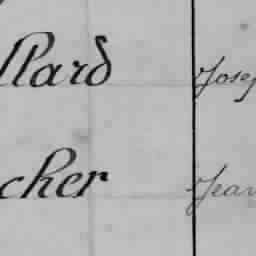 llard Josep
cher Jean